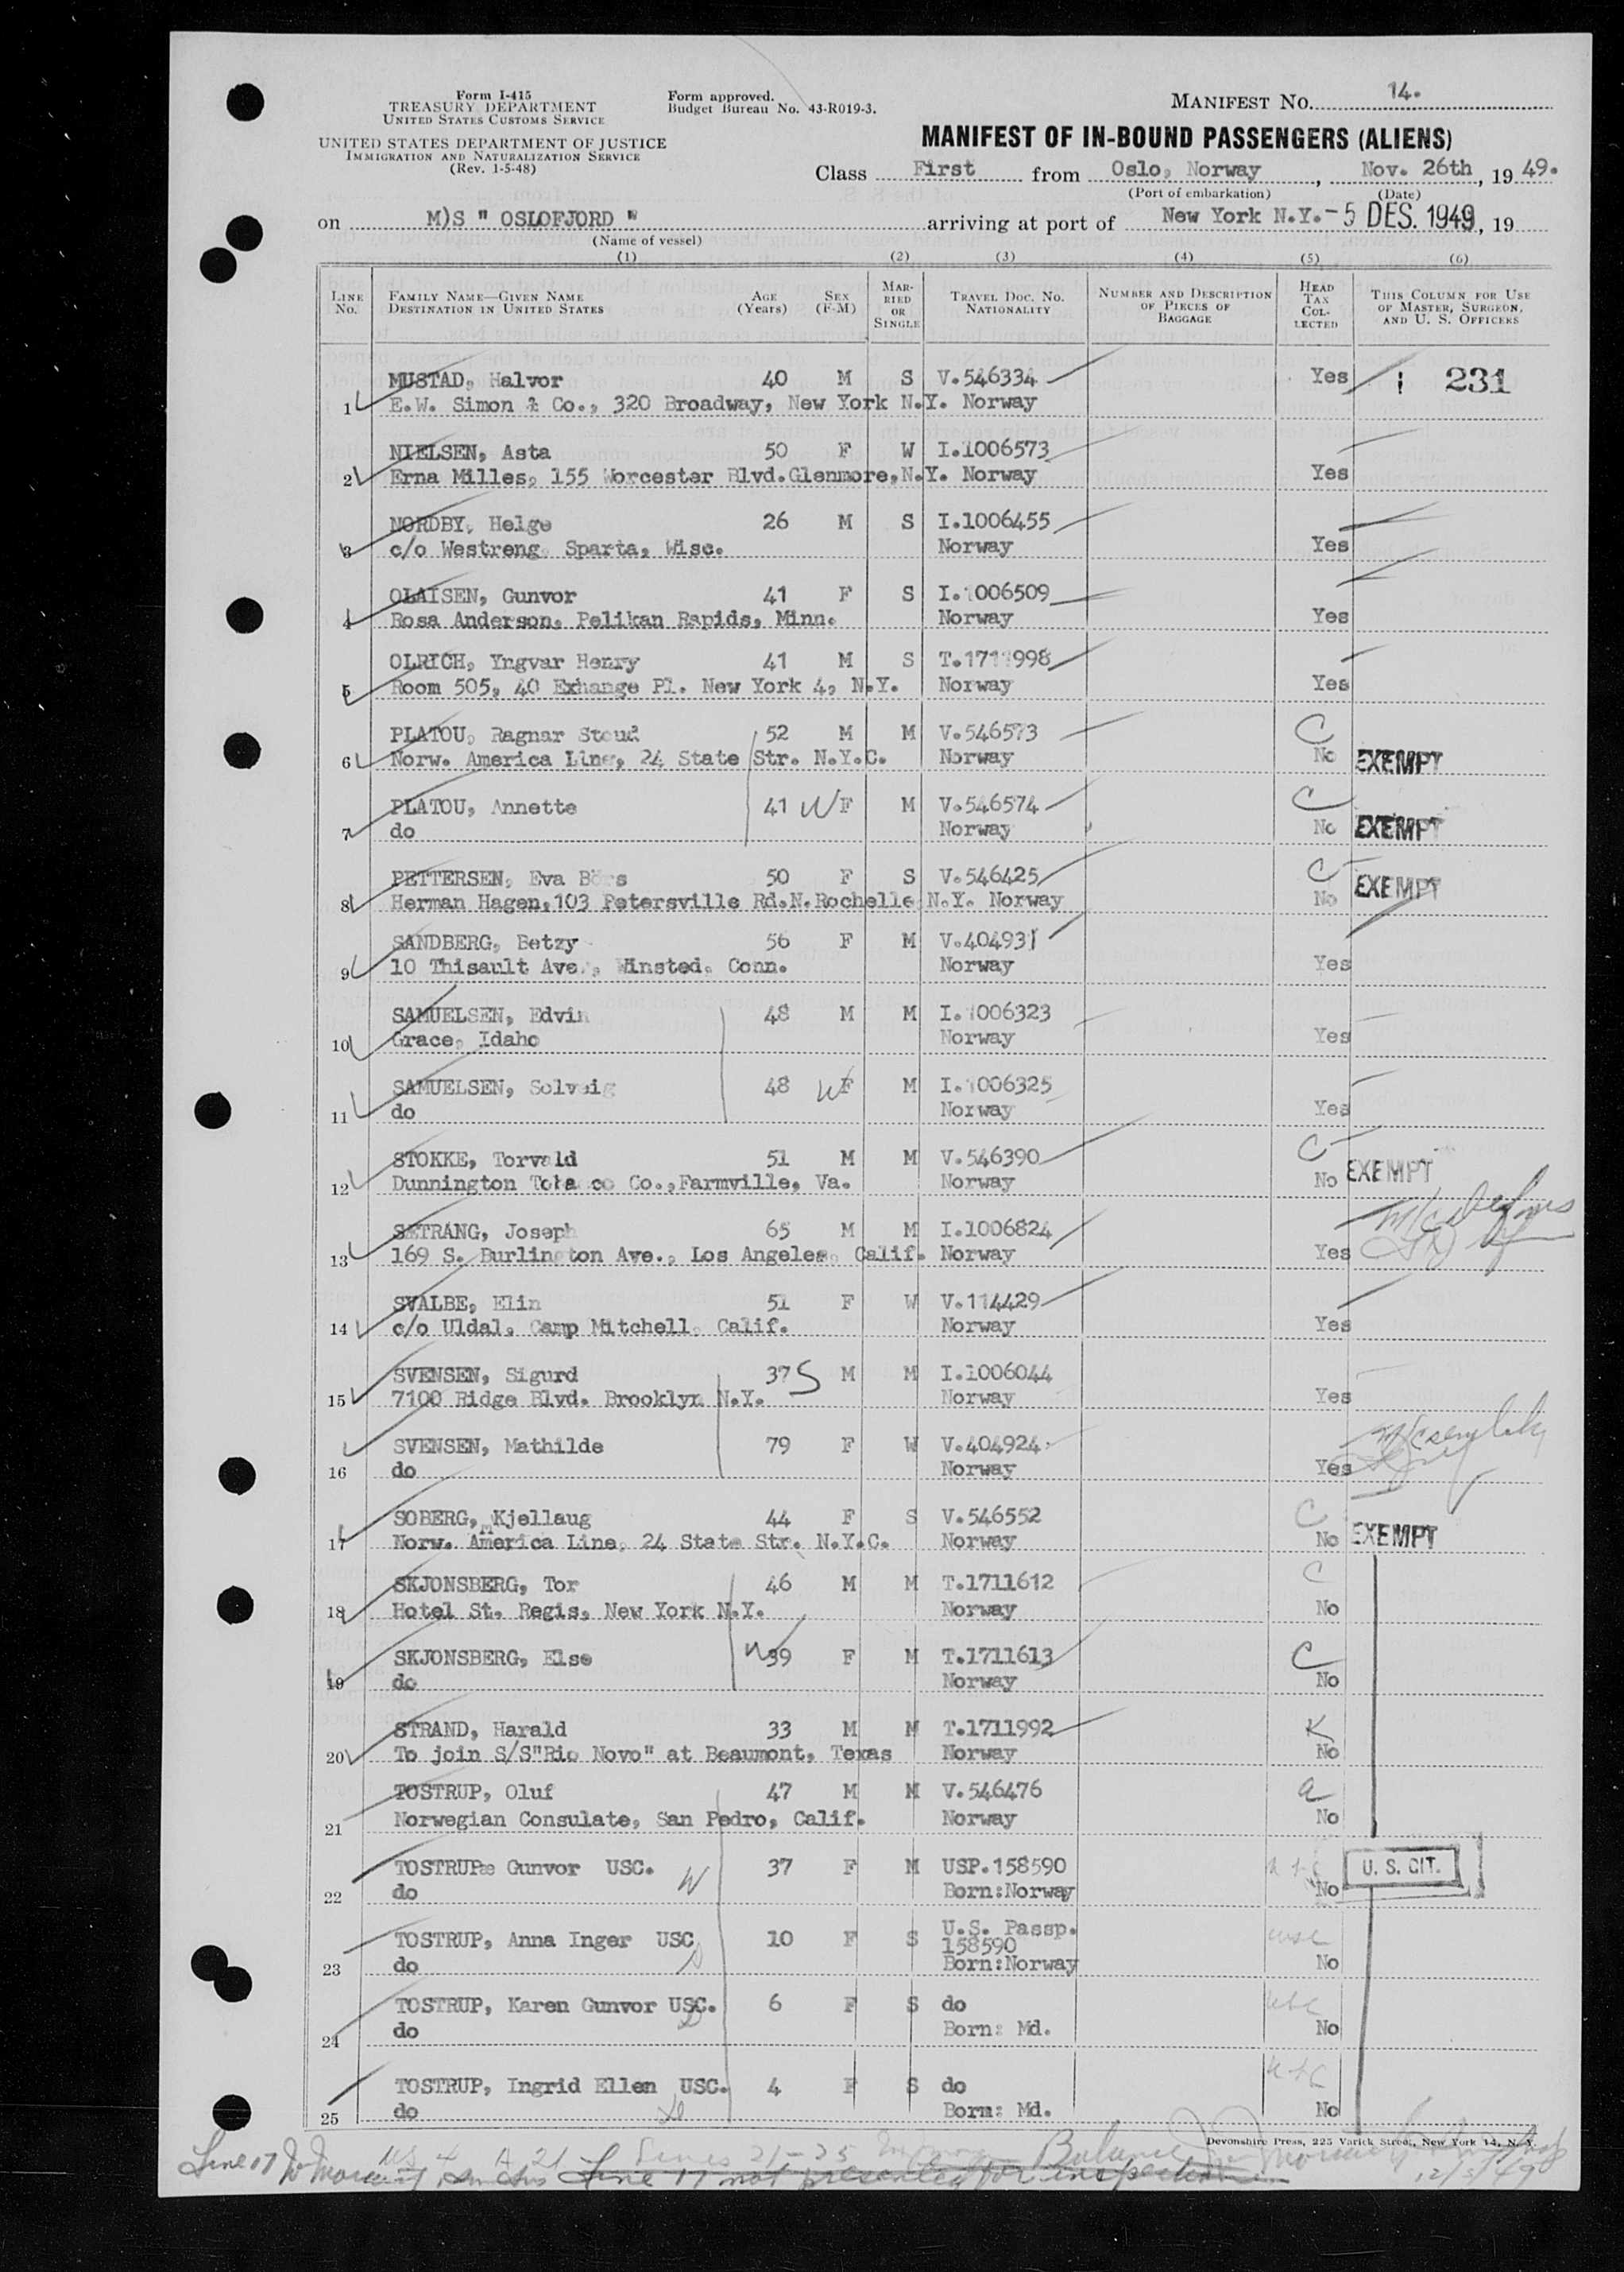 Form I-415
TREASURY DEPARTMENT
UNITED STATES CUSTOMS SERVICE
UNITED STATES DEPARTMENT OF JUSTICE
IMMIGRATION AND NATURALIZATION SERVICE
(Rev. 1-5-48)
Form approved.
Budget Bureau No. 43-R019-3.
MANIFEST NO. 14.
MANIFEST OF IN-BOUND PASSENGERS (ALIENS)
Class First from Oslo, Norway, Nov. 26th, 19 49.
(Port of embarkation) (Date)
on M)S " OSLOFJORD " arriving at port of New York N.Y. -5 DES. 1949, 19
(Name of vessel)
(1) (2) (3) (4) (5) (6)
LINE NO. FAMILY NAME—GIVEN NAME DESTINATION IN UNITED STATES AGE (Years) SEX (F-M) MARRIED OR SINGLE TRAVEL DOC. NO. NATIONALITY NUMBER AND DESCRIPTION OF PIECES OF BAGGAGE HEAD TAX COLLECTED THIS COLUMN FOR USE OF MASTER, SURGEON, AND U. S. OFFICERS
MUSTAD, Halvor 40 M S V.546334 Yes 231
1 E.W. Simon & Co., 320 Broadway, New York N.Y. Norway
NIELSEN, Asta 50 F W I.1006573
2 Erna Milles, 155 Worcester Blvd.Glenmore,N.Y. Norway Yes
NORDBY, Helge 26 M S I.1006455
3 c/o Westreng, Sparta, Wisc. Norway Yes
OLAISEN, Gunvor 41 F S I.1006509
4 Rosa Anderson, Pelikan Rapids, Minn. Norway Yes
OLRICH, Yngvar Henry 41 M S T.1711998
5 Room 505, 40 Exhange Pl. New York 4, N.Y. Norway Yes
PLATOU, Ragnar Stoud 52 M M V.546573 C
6 Norw. America Line, 24 State Str. N.Y.C. Norway No EXEMPT
PLATOU, Annette 41 W F M V.546574 C
7 do Norway No EXEMPT
PETTERSEN, Eva Börs 50 F S V.546425 C
8 Herman Hagen,103 Petersville Rd.N.Rochelle N.Y. Norway No EXEMPT
SANDBERG, Betzy 56 F M V.404931
9 10 Thisault Ave., Winsted. Conn. Norway Yes
SAMUELSEN, Edvin 48 M M I.1006323
10 Grace, Idaho Norway Yes
SAMUELSEN, Solveig 48 W F M I.1006325
11 do Norway Yes
STOKKE, Torvald 51 M M V.546390 C
12 Dunnington Tobacco Co.,Farmville, Va. Norway No EXEMPT
SETRANG, Joseph 65 M M I.1006824
13 169 S. Burlington Ave., Los Angeles, Calif. Norway Yes
SVALBE, Elin 51 F W V.114429
14 c/o Uldal, Camp Mitchell, Calif. Norway Yes
SVENSEN, Sigurd 37 S M M I.1006044
15 7100 Ridge Blvd. Brooklyn N.Y. Norway Yes
SVENSEN, Mathilde 79 F W V.404924
16 do Norway Yes
SOBERG, Kjellaug 44 F S V.546552 C
17 Norw. America Line, 24 State Str. N.Y.C. Norway No EXEMPT
SKJONSBERG, Tor 46 M M T.1711612 C
18 Hotel St. Regis, New York N.Y. Norway No
SKJONSBERG, Else W 39 F M T.1711613 C
19 do Norway No
STRAND, Harald 33 M M T.1711992 K
20 To join S/S"Rio Novo" at Beaumont, Texas Norway No
TOSTRUP, Oluf 47 M M V.546476 a
21 Norwegian Consulate, San Pedro, Calif. Norway No
TOSTRUP Gunvor USC. W 37 F M USP.158590 U. S. CIT.
22 do Born:Norway No
TOSTRUP, Anna Inger USC 10 F S U.S. Passp. 158590 usc
23 do Born:Norway No
TOSTRUP, Karen Gunvor USC. 6 F S do usc
24 do Born: Md. No
TOSTRUP, Ingrid Ellen USC. 4 F S do
25 do Born: Md. No
Devonshire Press, 225 Varick Street, New York 14, N. Y.
Line 17 not presented for inspection
12/5/49